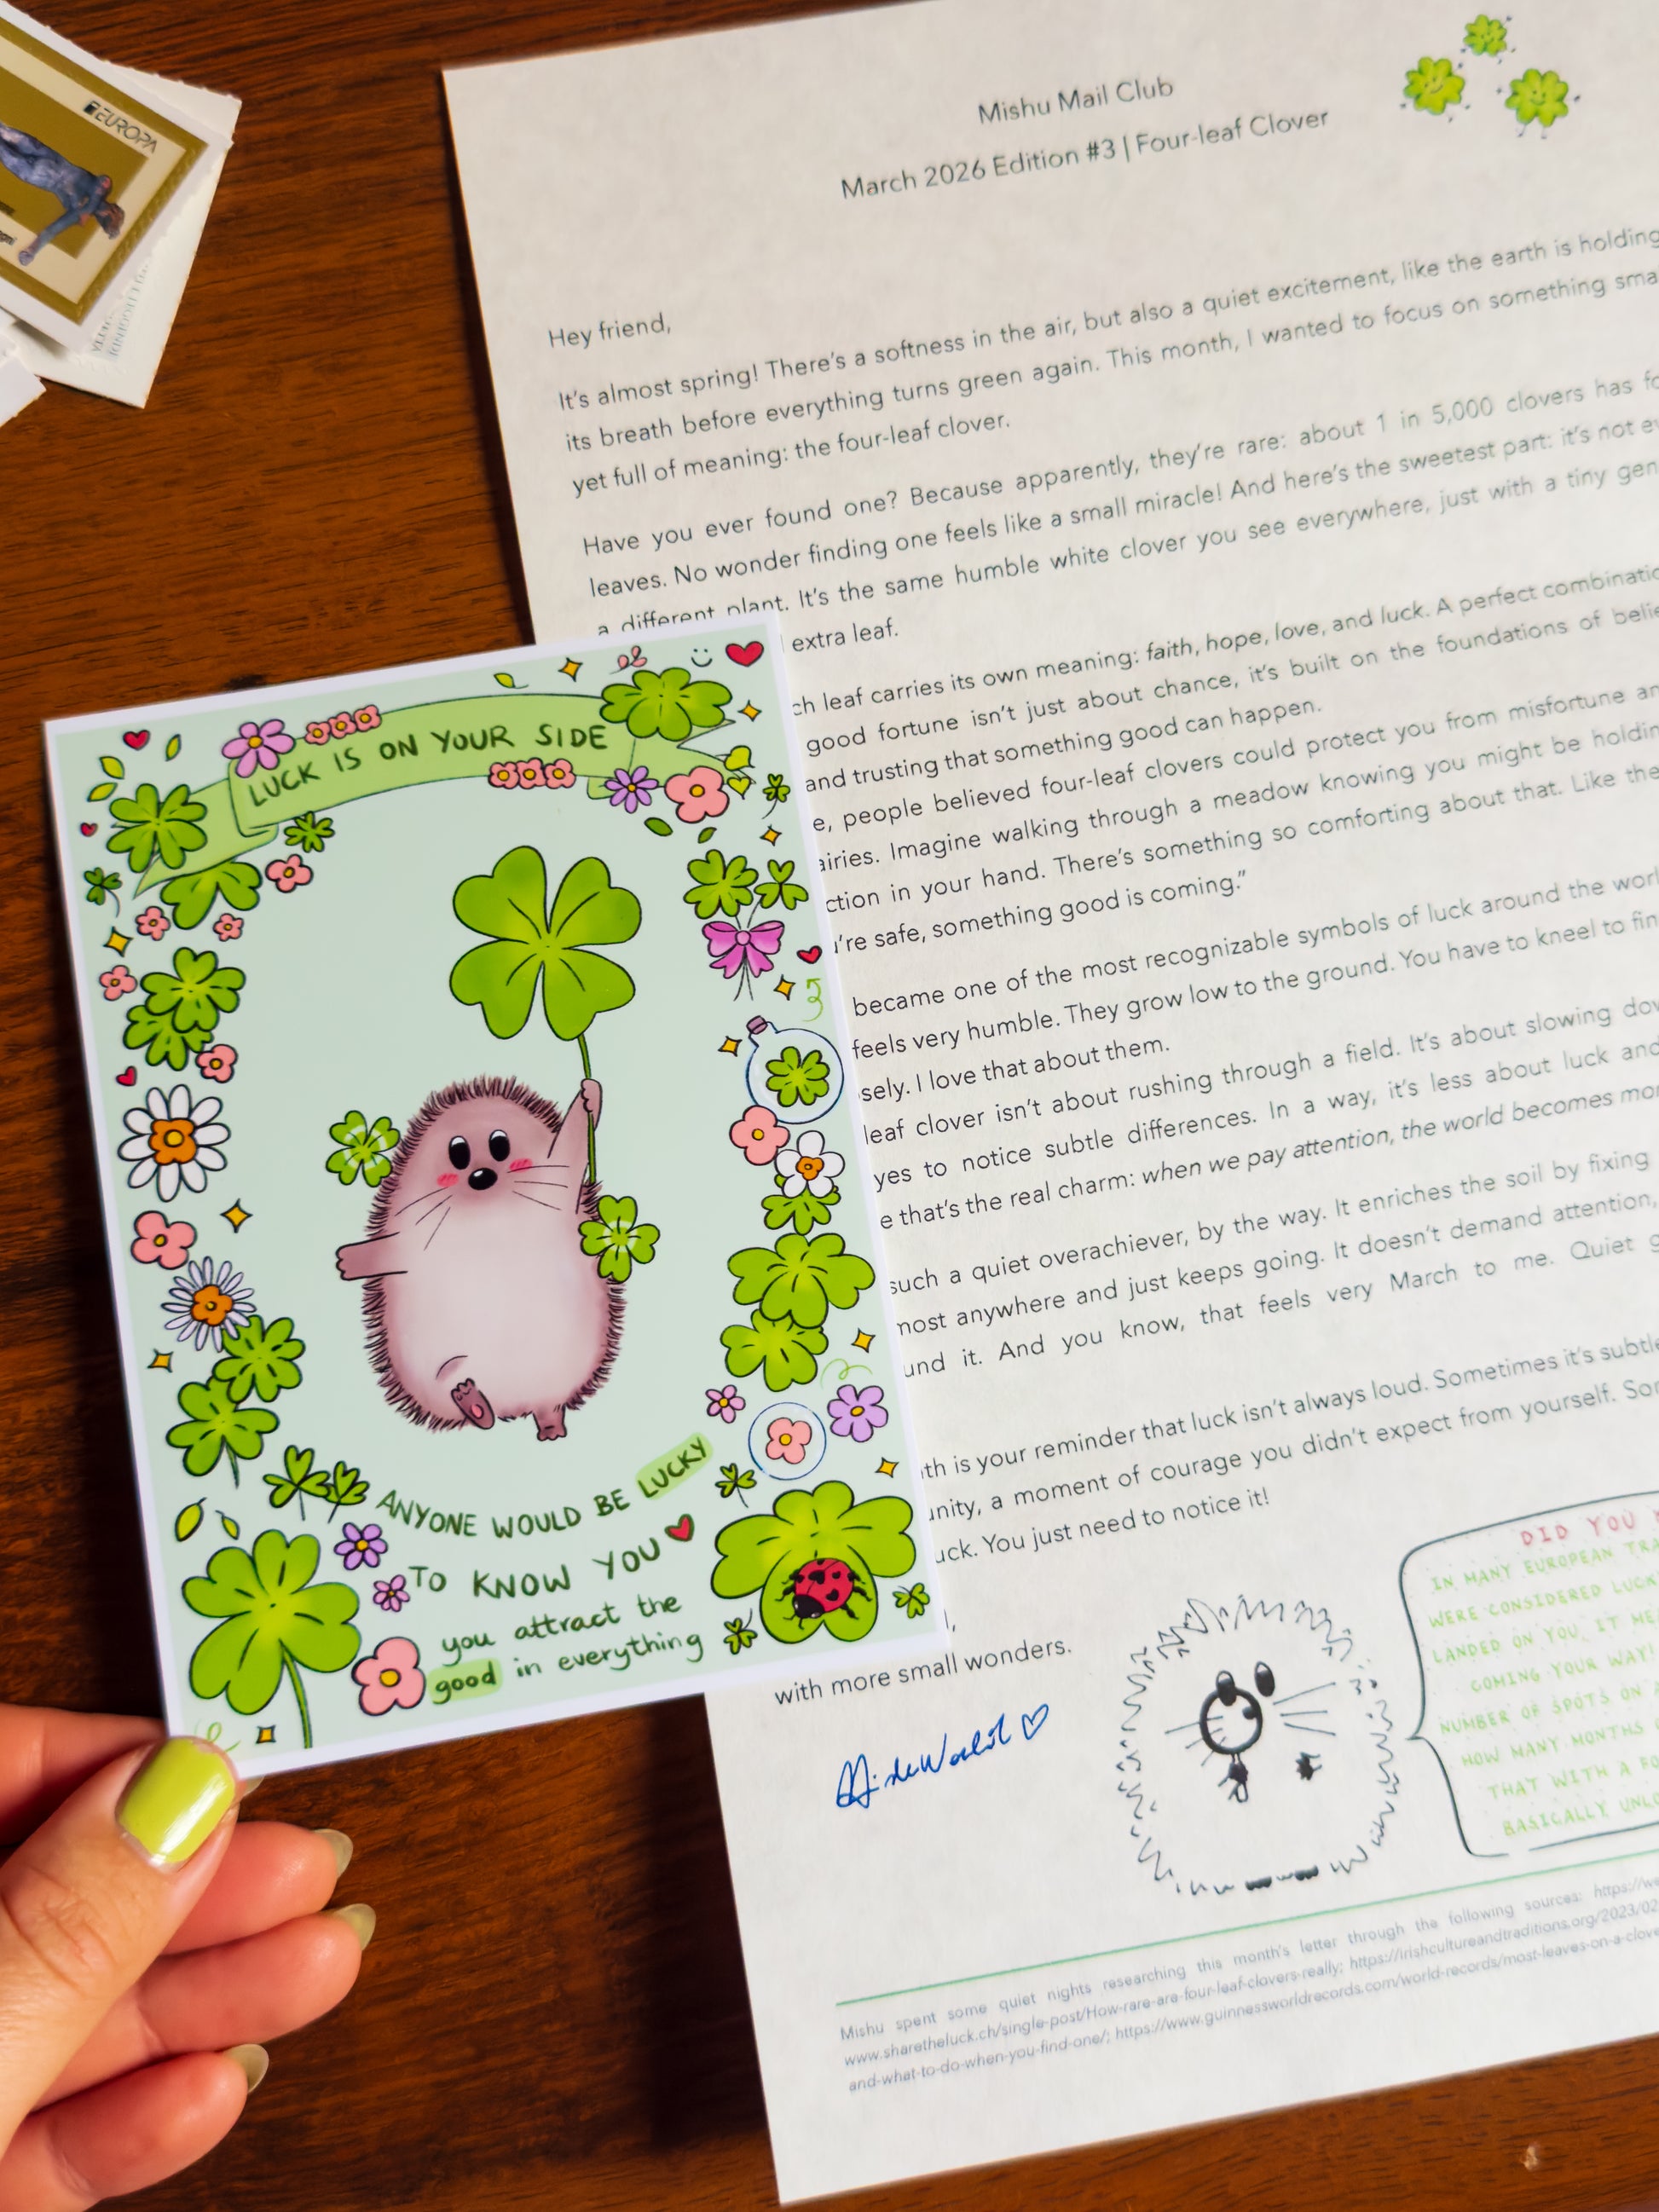 EUROPA
Mishu Mail Club
March 2026 Edition #3 | Four-leaf Clover
Hey friend,
It's almost spring! There's a softness in the air, but also a quiet excitement, like the earth is holding
its breath before everything turns green again. This month, I wanted to focus on something
yet full of meaning: the four-leaf clover.
Have you ever found one? Because apparently, they're rare: about 1 in 5,000 clovers has
leaves. No wonder finding one feels like a small miracle! And here's the sweetest part: it's not
a different plant. It's the same humble white clover you see everywhere, just with a tiny
extra leaf.
leaf carries its own meaning: faith, hope, love, and luck. A perfect
good fortune isn't just about chance, it's built on the foundations of
and trusting that something good can happen.
people believed four-leaf clovers could protect you from misfortune
Imagine walking through a meadow knowing you might be
in your hand. There's something so comforting about that. Like
safe, something good is coming."
became one of the most recognizable symbols of luck around the
feels very humble. They grow low to the ground. You have to kneel to
I love that about them.
leaf clover isn't about rushing through a field. It's about slowing
to notice subtle differences. In a way, it's less about luck and
that's the real charm: when we pay attention, the world becomes
such a quiet overachiever, by the way. It enriches the soil by fixing
anywhere and just keeps going. It doesn't demand attention,
it. And you know, that feels very March to me. Quiet
is your reminder that luck isn't always loud. Sometimes it's
a moment of courage you didn't expect from yourself.
You just need to notice it!
with more small wonders.
DID YOU
IN MANY EUROPEAN
WERE CONSIDERED
LANDED ON YOU, IT
COMING YOUR WAY!
NUMBER OF SPOTS ON
HOW MANY MONTHS
THAT WITH A
BASICALLY
Mishu spent some quiet nights researching this month's letter through the following sources:
www.sharetheluck.ch/single-post/How-rare-are-four-leaf-clovers-really; https://irishcultureandtraditions.org/2023/02
and-what-to-do-when-you-find-one/; https://www.guinnessworldrecords.com/world-records/most-leaves-on-a-clove
LUCK IS ON YOUR SIDE
ANYONE WOULD BE LUCKY
TO KNOW YOU
you attract the
good in everything